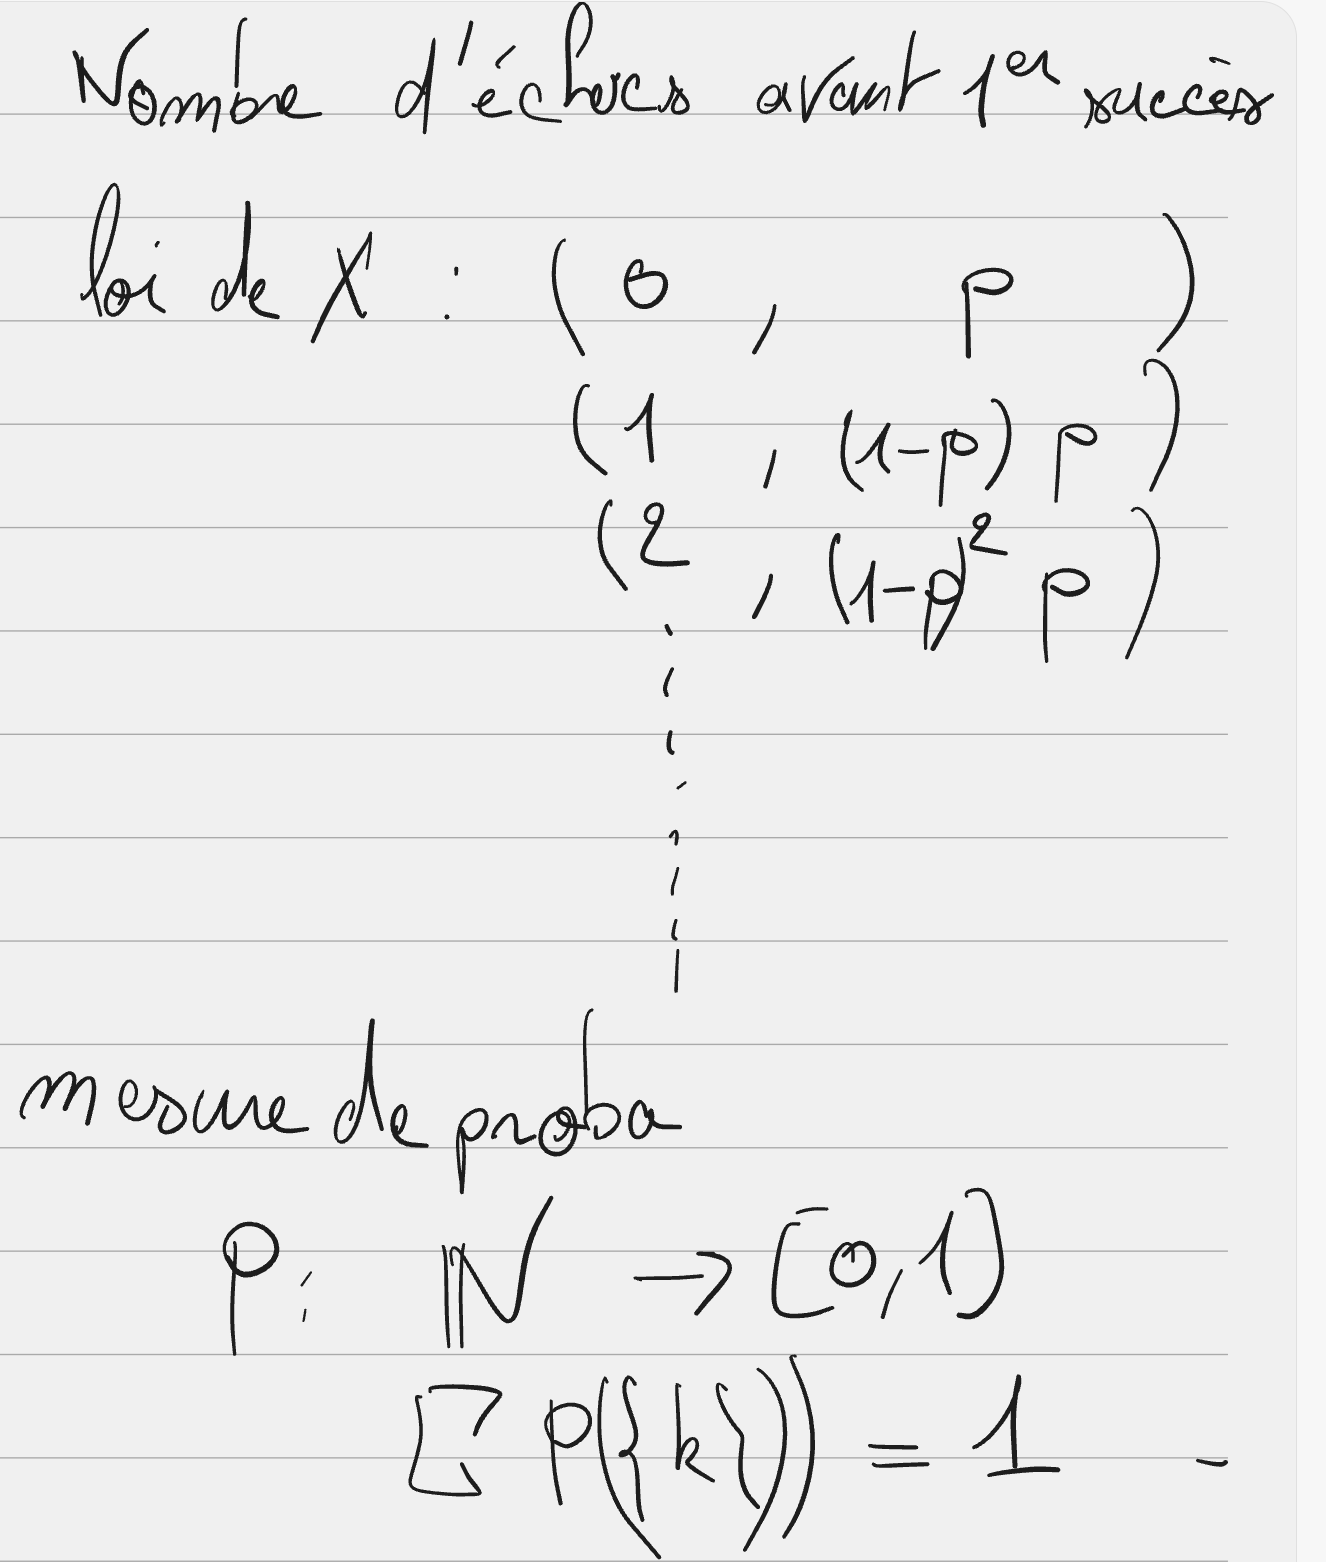 Nombre d'échecs avant 1er succès
loi de X : (0 , p)
(1 , (1-p) p)
(2 , (1-p)² p)
mesure de proba
P : ℕ → [0,1]
Σ P({k}) = 1